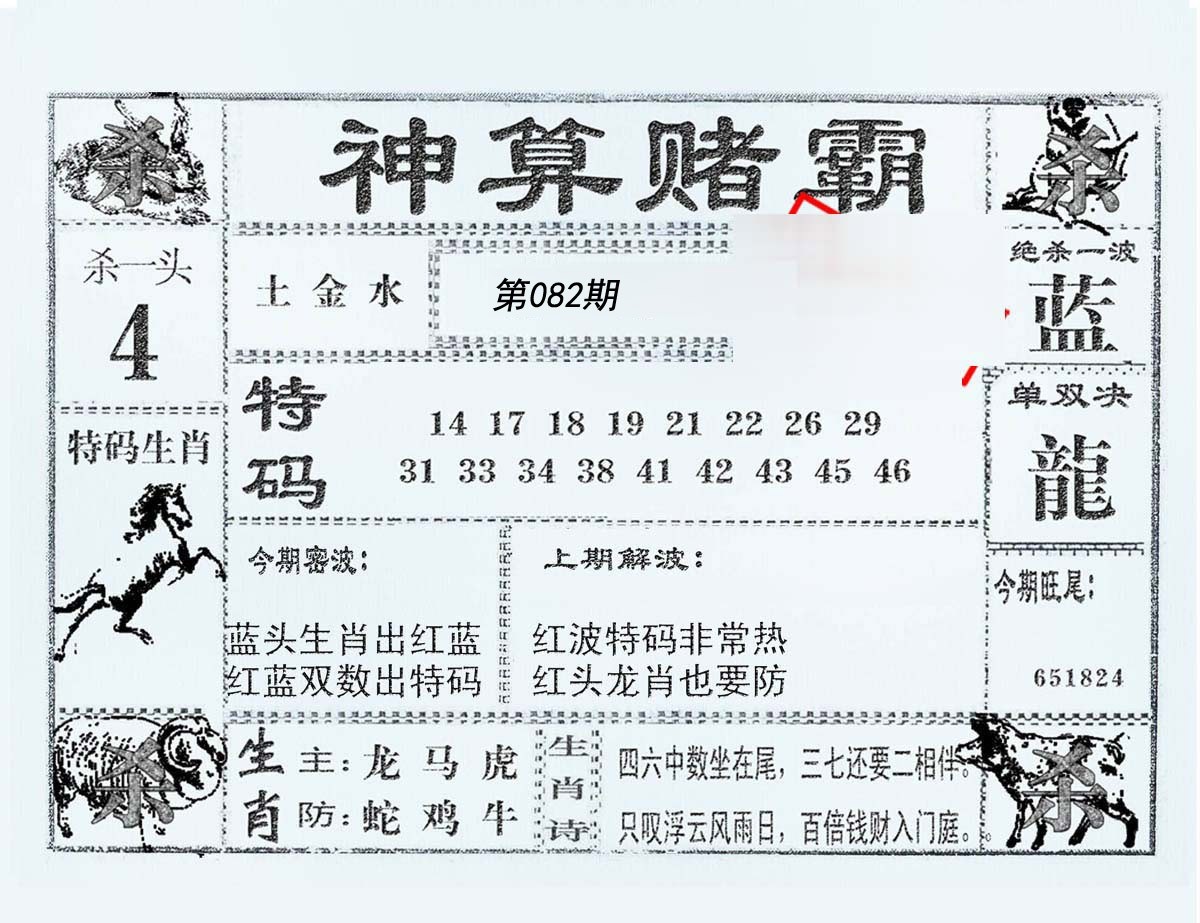 神算赌霸
杀
杀
杀一头
4
土 金 水
第082期
绝杀一波
蓝
特码
14 17 18 19 21 22 26 29
31 33 34 38 41 42 43 45 46
单双决
龍
特码生肖
今期密波：
蓝头生肖出红蓝
红蓝双数出特码
上期解波：
红波特码非常热
红头龙肖也要防
今期旺尾：
651824
杀
生肖
主：龙 马 虎
防：蛇 鸡 牛
生肖诗
四六中数坐在尾，三七还要二相伴。
只叹浮云风雨日，百倍钱财入门庭。
杀